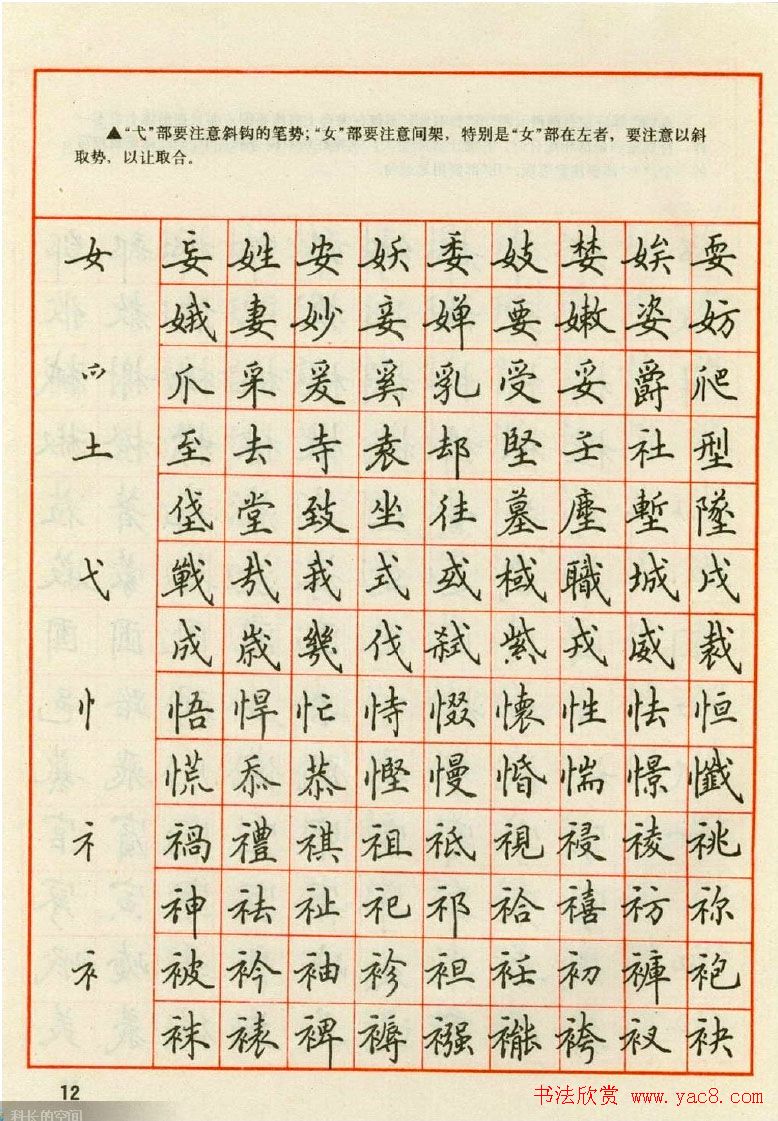 ▲“弋”部要注意斜钩的笔势；“女”部要注意间架，特别是“女”部在左者，要注意以斜
取势，以让取合。
女 妄 姓 安 妖 委 妓 婪 娭 耍
娥 妻 妙 妾 婵 要 嫩 姿 妨
爫 爪 采 爰 奚 乳 受 妥 爵 爬
土 至 去 寺 袁 却 堅 壬 社 型
垡 堂 致 坐 往 墓 塵 塹 墜
弋 戰 哉 我 式 或 域 職 城 戌
成 歲 幾 伐 弑 戎 威 裁
忄 悟 悍 忙 恃 惙 懷 性 怯 恒
慌 忝 恭 慳 慢 惽 惴 憬 懺
礻 禍 禮 祺 祖 祗 視 祲 祾 祧
神 祛 祉 祀 祁 祫 禧 祊 祢
衤 被 衿 袖 袗 袒 衽 初 褲 袍
袜 裱 裨 褥 襁 袴 衩 袂
12
书法欣赏 www.yac8.com
科长的空间